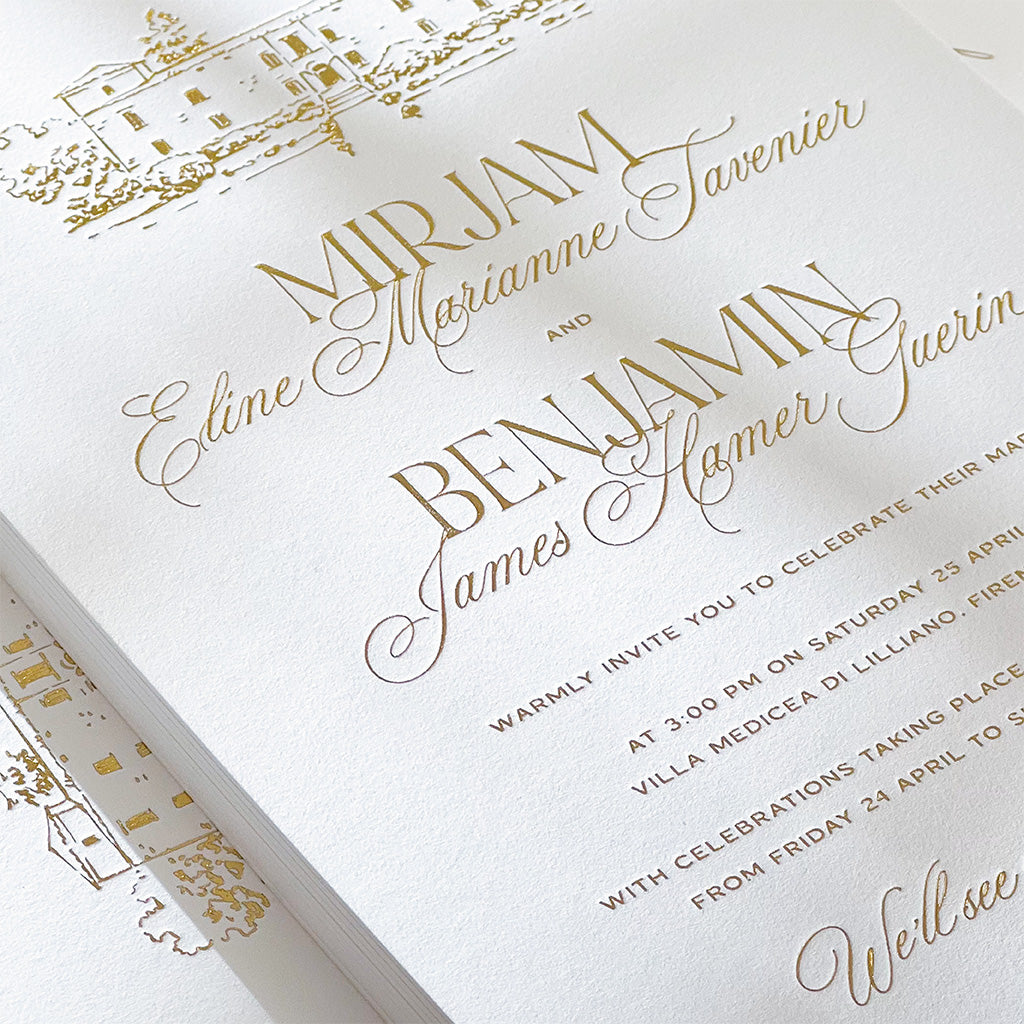 MIRJAM
Eline Marianne Tavenier
AND
BENJAMIN
James Hamer Guerin
WARMLY INVITE YOU TO CELEBRATE THEIR MAR
AT 3:00 PM ON SATURDAY 25 APRIL
VILLA MEDICEA DI LILLIANO, FIREN
WITH CELEBRATIONS TAKING PLACE
FROM FRIDAY 24 APRIL TO S
We'll see